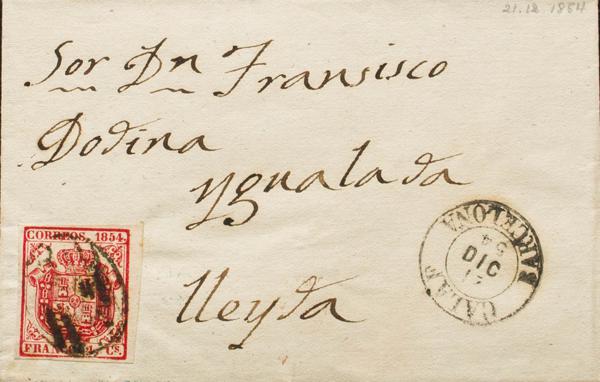 21.12 1854
Sor Dn Fransisco
Dodina
ygualada
lleyda
CORREOS. 1854.
FRANCO Cs.
BARCELONA
54
DIC